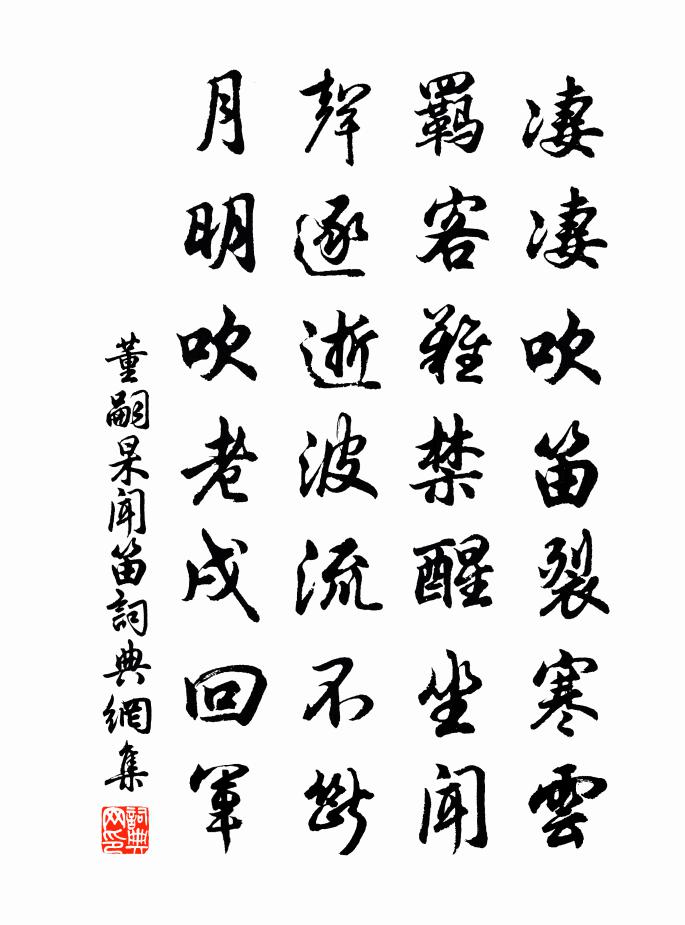 凄凄吹笛裂寒雲
羈客難禁醒坐聞
聲逐逝波流不斷
月明吹老戍回軍
董嗣杲聞笛詞典網集
詞典网印